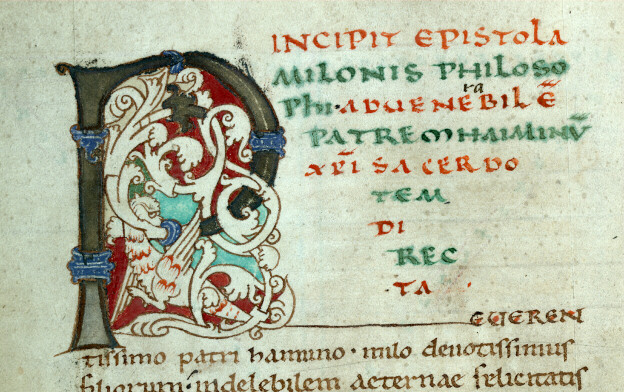 INCIPIT EPISTOLA
MILONIS PHILOSO
PHI·ADUENERABILĒ
PATREM HAIMINŪ
XPI SACERDO
TEM
DI
REC
TA
R EUEREN
tissimo patri hamino· milo deuotissimus
filiorum· indelebilem aeternae felicitatis